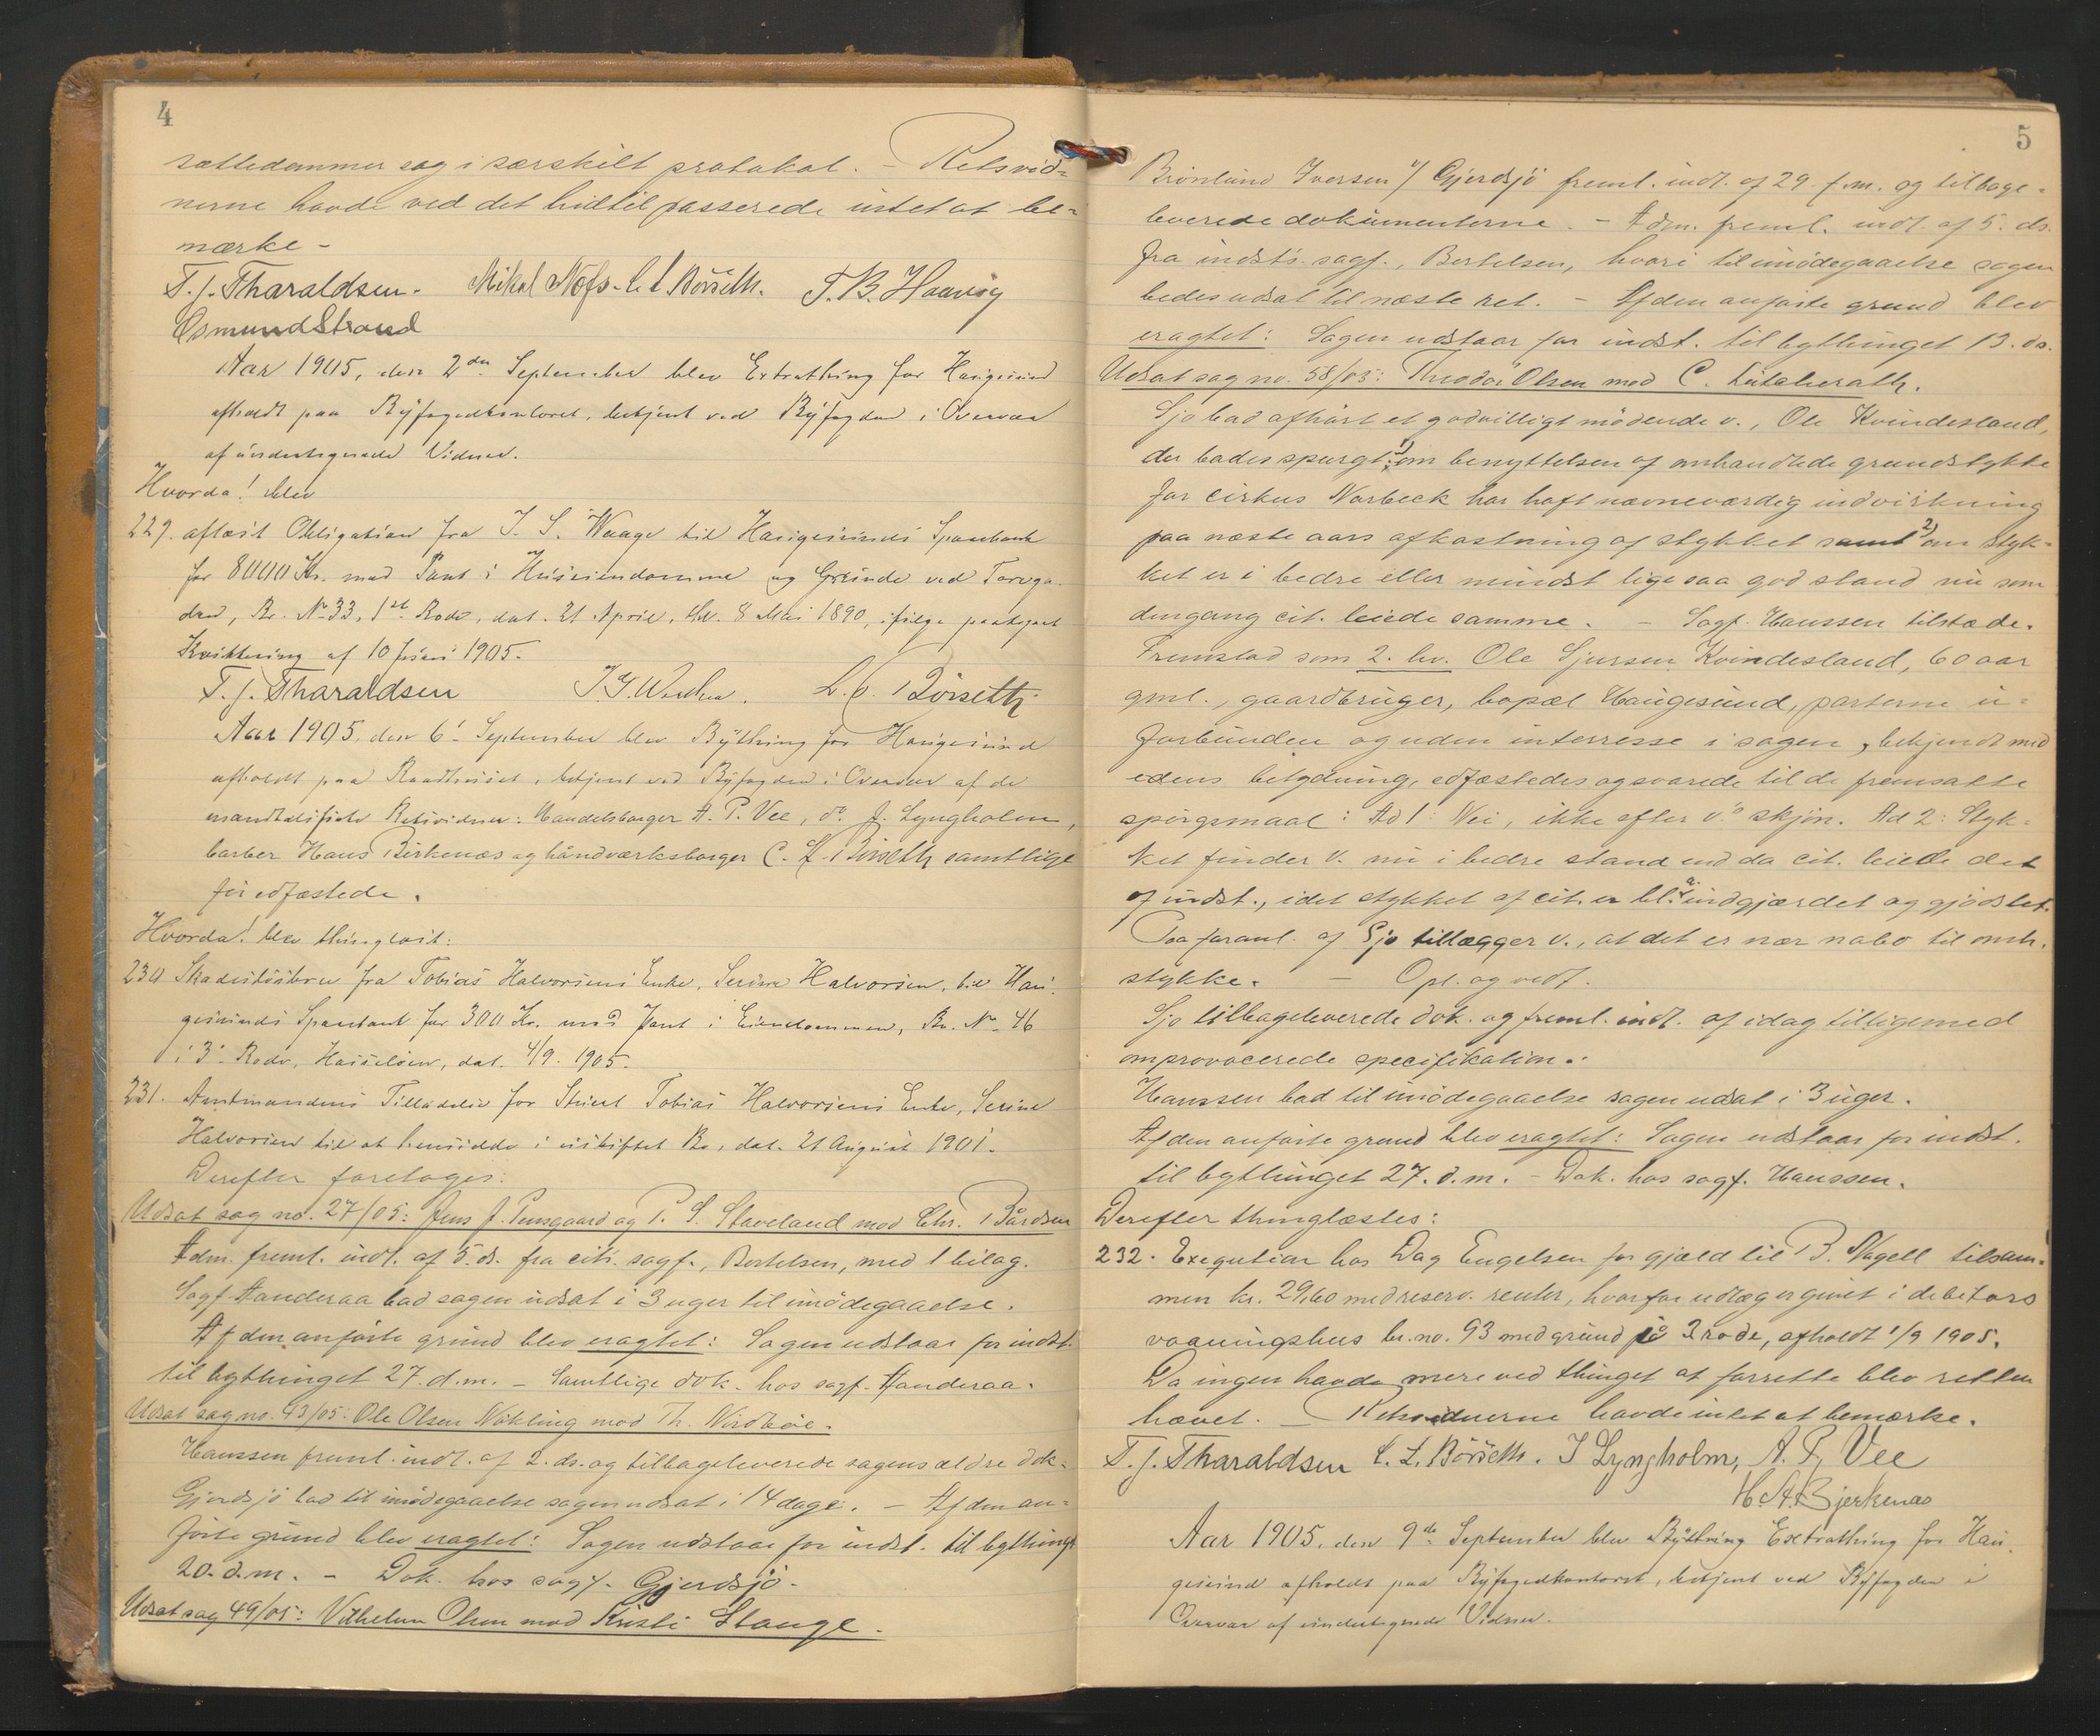 4
sættedommer sag i særskilt protokol. – Retsvid-
nerne havde ved det hidtil passerede intet at be-
mærke –
T. J. Tharaldsen. Mikal Næss. C. L. Börseth. T. B. Haavig
Osmund Strand
Aar 1905, den 2den September blev Extrathing for Haugesund
afholdt paa Byfogedkontoret, betjent ved Byfogden i Overvær
af undertegnede Vidner.
Hvorda! blev
229. aflæst Obligation fra J. S. Waage til Haugesunds Sparebank
for 8000 Kr. med Pant i Huseiendomme og Grunde ved Torvga-
den, Br. No 33, 1ste Rode, dat. 21 April, thl. 8 Mai 1890, ifølge paategnet
Kvittering af 10 Juni 1905.
T. J. Tharaldsen L. C. Börseth
Aar 1905, den 6' September blev Bything for Haugesund
afholdt paa Raadhuset, betjent ved Byfogden i Overvær af de
mandtalsførte Retsvidner: Handelsborger A. P. Vee, do J. Lyngholm,
barber Hans Birkenæs og håndværksborger C. L. Börseth samtlige
før edfæstede.
Hvorda! blev thinglæst:
230 Skadesløsbrev fra Tobias Halvorsens Enke, Serine Halvorsen, til Hau-
gesunds Sparebank for 300 Kr. med Pant i Eiendommen, Br. No. 46
i 3' Rode, Hasseløen, dat. 4/9. 1905.
231. Amtmandens Tilladelse for Skrædd Tobias Halvorsens Enke, Serine
Halvorsen til at hensidde i uskiftet Bo, dat. 21 August 1901.
Derefter foretoges:
Udsat sag no. 27/05: Jens J. Punsgaard og P. S. Staveland mod Chr. Bårdsen
Adm. freml. indl. af 5. ds. fra cits. sagf., Bertelsen, med 1 bilag.
Sagf. Aanderaa bad sagen udsat i 3 uger til imødegaaelse.
Af den anførte grund blev eragtet: Sagen udstaar for indst.
til bythinget 27. d.m. – Samtlige dok. hos sagf. Aanderaa.
Udsat sag no. 43/05: Ole Olsen Nökling mod Th. Nordbøe.
Hanssen freml. indl. af 2. ds. og tilbageleverede sagens ældre dok.
Gjerdsjö bad til imødegaaelse sagen udsat i 14 dage. – Af den an-
førte grund blev eragtet: Sagen udstaar for indst. til bythinget
20. d.m. – Dok. hos sagf. Gjerdsjö.
Udsat sag 49/05: Vilhelm Olsen mod Kristi Stange.
5
Brönlund Iversen v/ Gjerdsjö freml. indl. af 29. f.m. og tilbage-
leverede dokumenterne. – Adm. freml. indl. af 5. ds.
fra indst's. sagf., Bertelsen, hvori til imødegaaelse sagen
bedes udsat til næste ret. – Af den anførte grund blev
eragtet: Sagen udstaar for indst. til bythinget 13. ds.
Udsat sag no. 58/05: Theodor Olsen mod C. Lütcherath.
Sjo bad afhørt et godvilligt mødende v., Ole Kvindesland,
der bades spurgt: 1) om benyttelsen af omhandlede grundstykke
for cirkus Norbeck har haft nævneværdig indvirkning
paa næste aars afkastning af stykket samt 2) om styk-
ket er i bedre eller mindst lige saa god stand nu som
dengang cit. leiede samme. – Sagf. Hanssen tilstæde.
Fremstod som 2. hv. Ole Sjursen Kvindesland, 60 aar
gml., gaardbruger, bopæl Haugesund, parterne u-
forbunden og uden interresse i sagen, bekjendt med
edens betydning, edfæstedes og svarede til de fremsatte
spørgsmaal: Ad 1: Nei, ikke efter v.'s skjøn. Ad 2: Styk-
ket finder v. nu i bedre stand end da cit. leiede det
af indst., idet stykket af cit. er bl. a. indgjærdet og gjødslet.
Paa foranl. af Sjo tillægger v., at det er nær nabo til omh.
stykke. – Opl. og vedt.
Sjo tilbageleverede dok. og freml. indl. af idag tilligemed
omprovocerede specifikation.
Hanssen bad til imødegaaelse sagen udsat i 3 uger.
Af den anførte grund blev eragtet: Sagen udstaar for indst.
til bythinget 27. d.m. – Dok. hos sagf. Hanssen.
Derefter thinglæstes:
232. Exequtior hos Dag Engelsen for gjæld til B. Nagell tilsam-
men kr. 29,60 med reserv. renter, hvorfor udlæg er givet i debitors
vaaningshus br. no. 93 med grund på 2 rode, afholdt 1/9 1905.
Da ingen havde mere ved thinget at forrette blev retten
hævet. – Retsvidnerne havde intet at bemærke.
T. J. Tharaldsen C. L. Börseth. J Lyngholm, A. P. Vee
H A. Bjerkenæs
Aar 1905, den 9de September blev Bything Extrathing for Hau-
gesund afholdt paa Byfogedkontoret, betjent ved Byfogden i
Overvær af undertegnede Vidner.